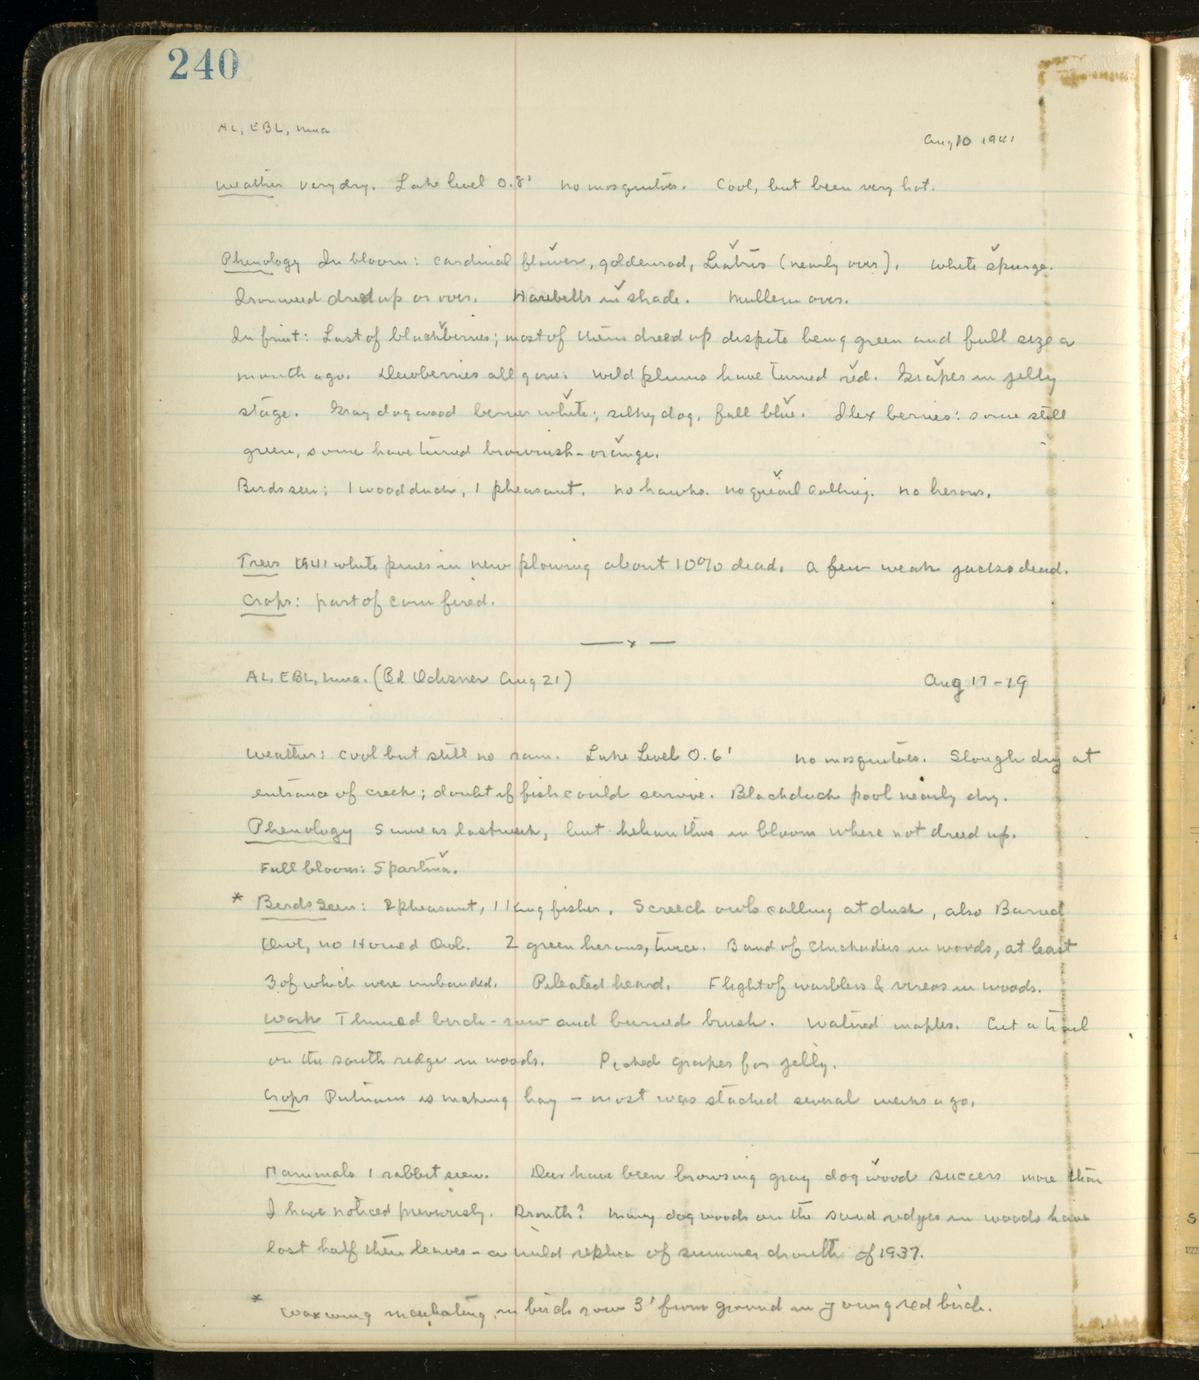 240
AL, EBL, Nina
Aug 10 1941
Weather very dry. Lake level 0.8' no mosquitoes. Cool, but been very hot.
Phenology In bloom: cardinal flower, goldenrod, Liatris (nearly over). White spurge.
Ironweed dried up or over. Harebells in shade. Mullein over.
In fruit: Last of blackberries; most of them dried up dispite being green and full size a
month ago. Dewberries all gone. Wild plums have turned red. Grapes in jelly
stage. Gray dogwood berries white; silky dog. full blue. Ilex berries: some still
green, some have turned brownish-orange.
Birds seen: 1 wood duck, 1 pheasant. no hawks. no quail calling. no herons.
Trees 1941 white pines in new plowing about 10% dead. A few weak jacks dead.
Crops: part of corn fired.
— x —
AL, EBL, Nina. (Ed Ochsner Aug 21)
Aug 17-19
Weather: cool but still no rain. Lake Level 0.6' no mosquitoes. Slough dry at
entrance of creek; doubt if fish could survive. Blackduck pool nearly dry.
Phenology Same as last week, but helianthus in bloom where not dried up.
Full bloom: Spartina.
* Birds Seen: 2 pheasant, 1 kingfisher. Screech owls calling at dusk, also Barred
Owl, no Horned Owl. 2 green herons, twice. Band of Chickadees in woods, at least
3 of which were unbanded. Pileated heard. Flight of warblers & vireos in woods.
Work Thinned birch-row and burned brush. Watered maples. Cut a trail
on the south ridge in woods. Picked grapes for jelly.
Crops Putnam is making hay - most was stacked several weeks ago.
Mammals 1 rabbit seen. Deer have been browsing gray dogwood success more than
I have noticed previously. Drouth? Many dogwoods on the sand ridges in woods have
lost half their leaves - a mild replica of summer drouth of 1937.
* Waxwing incubating in birch row 3' from ground in young red birch.